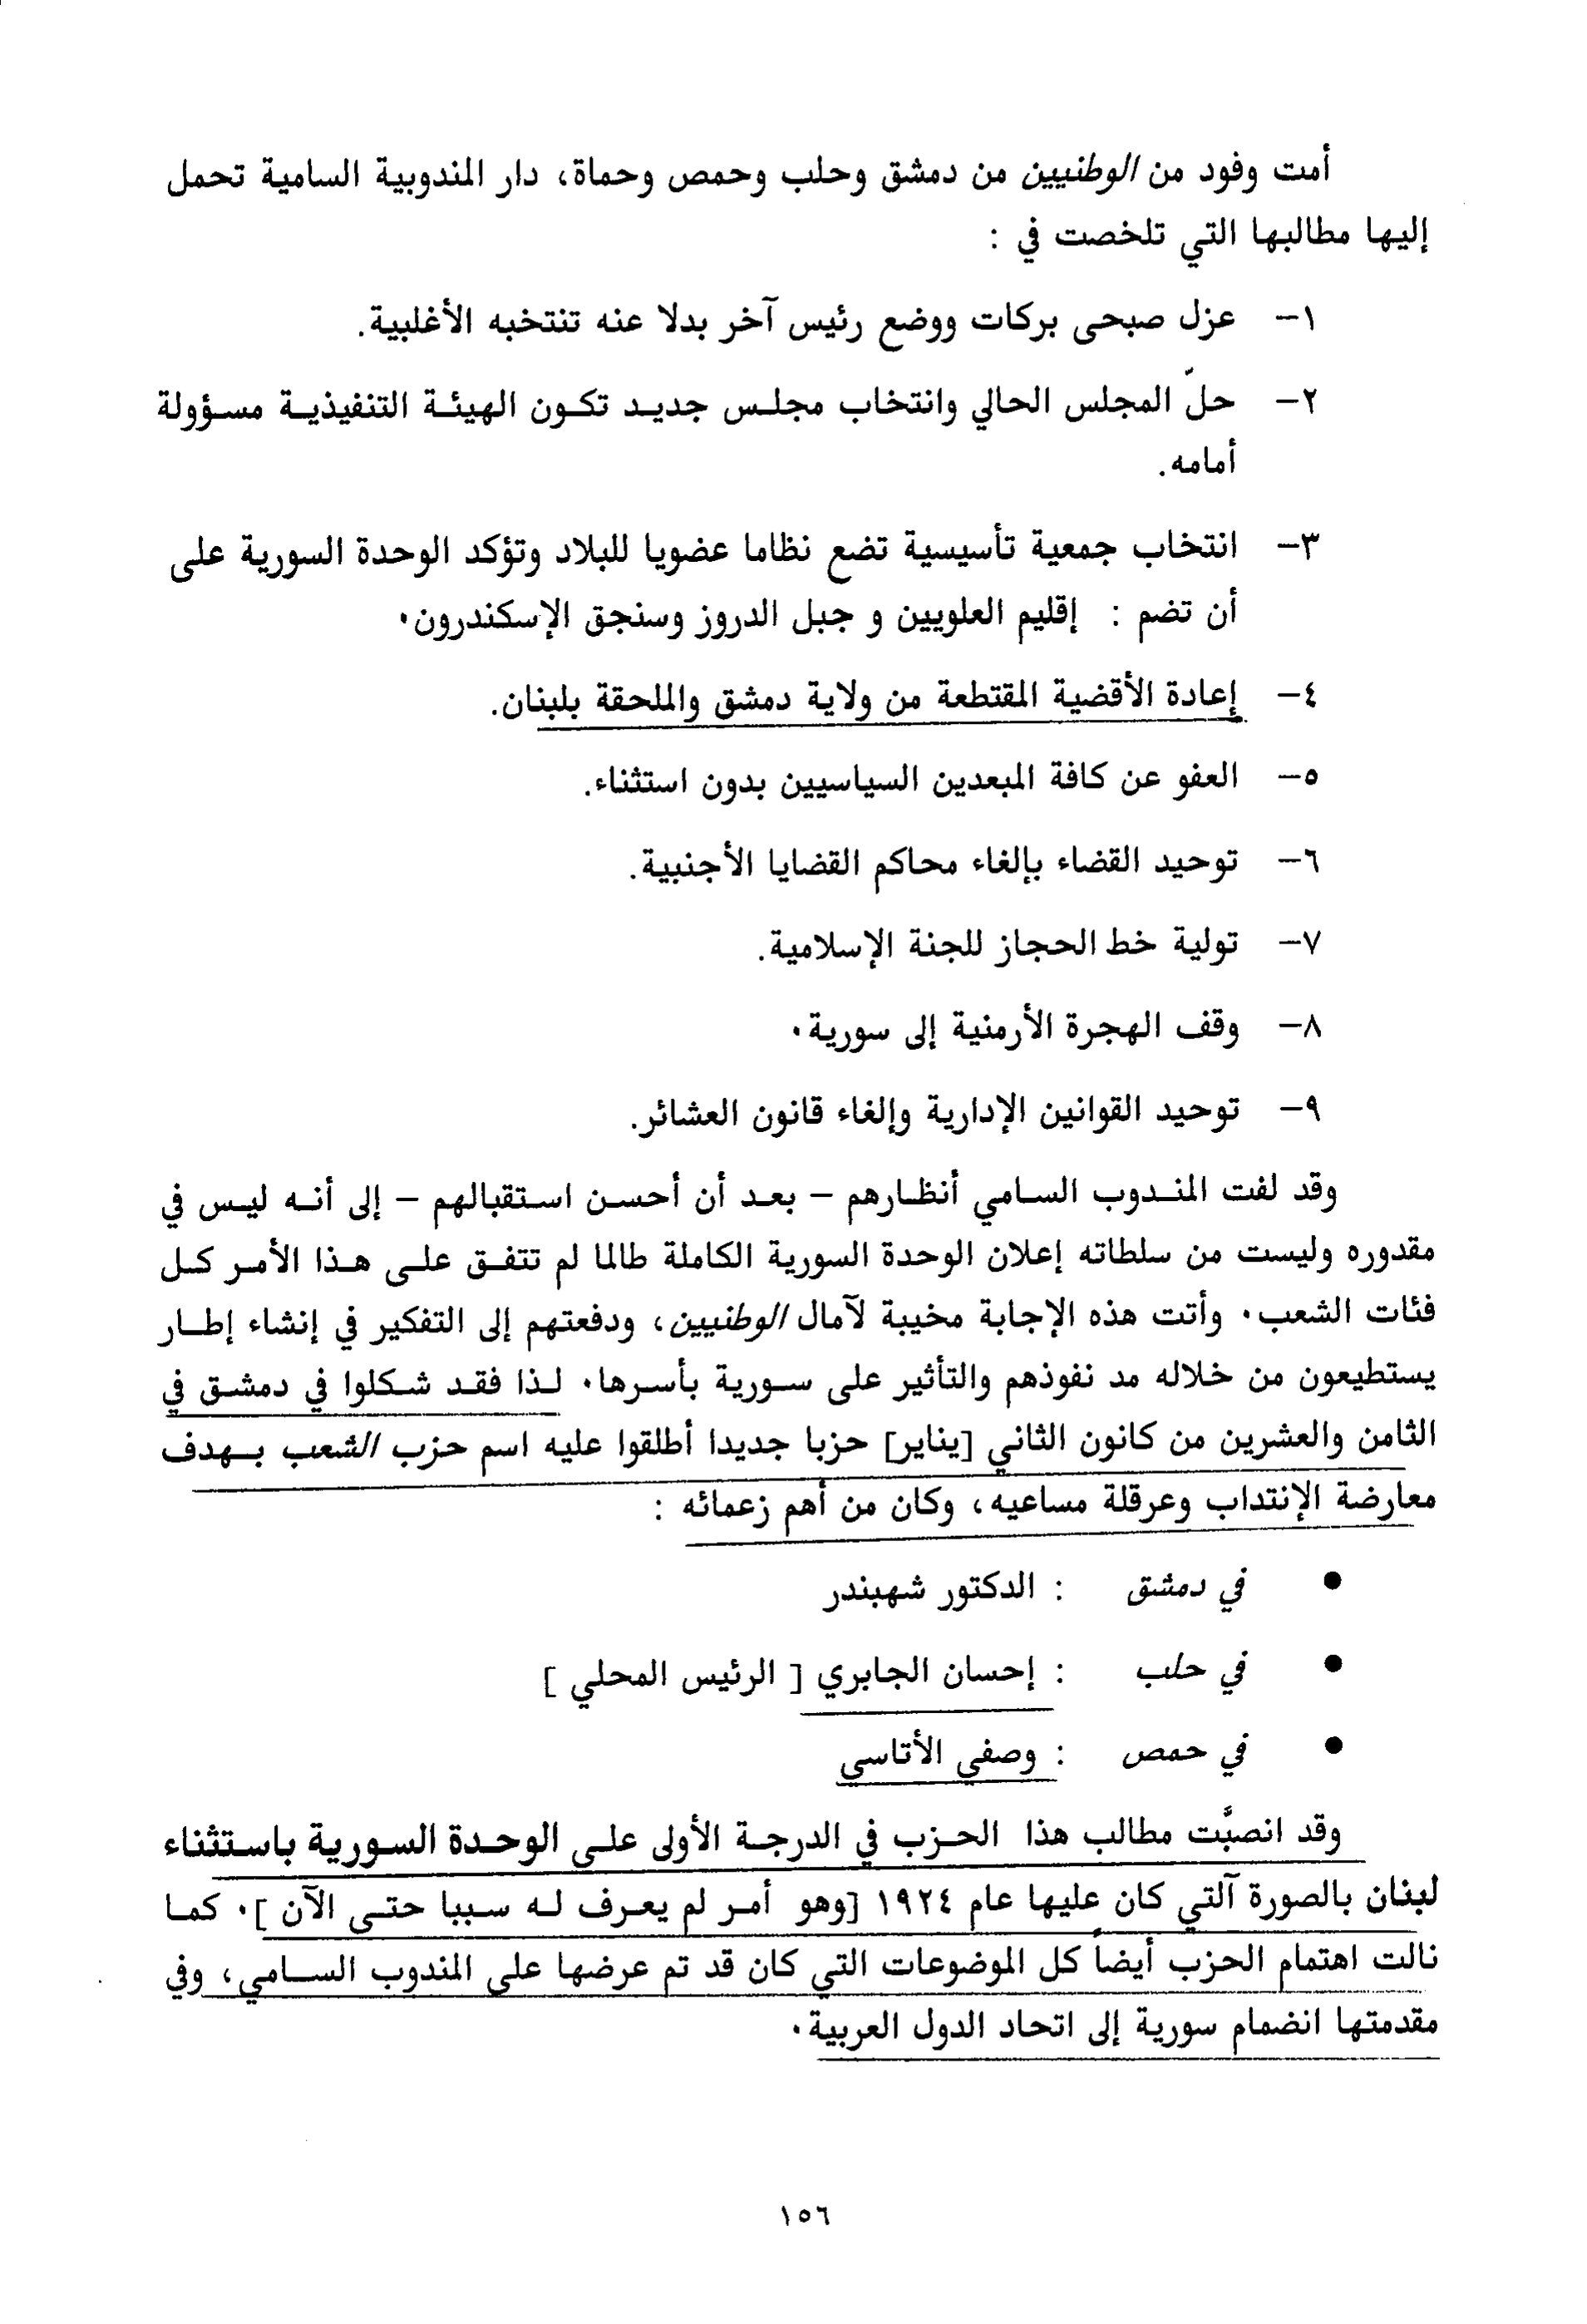 أمت وفود من الوطنيين من دمشق وحلب وحمص وحماة، دار المندوبية السامية تحمل
إليها مطالبها التي تلخصت في :
١– عزل صبحى بركات ووضع رئيس آخر بدلا عنه تنتخبه الأغلبية.
٢– حلّ المجلس الحالي وانتخاب مجلس جديد تكون الهيئة التنفيذية مسؤولة
أمامه.
٣– انتخاب جمعية تأسيسية تضع نظاما عضويا للبلاد وتؤكد الوحدة السورية على
أن تضم : إقليم العلويين و جبل الدروز وسنجق الإسكندرون.
٤– إعادة الأقضية المقتطعة من ولاية دمشق والملحقة بلبنان.
٥– العفو عن كافة المبعدين السياسيين بدون استثناء.
٦– توحيد القضاء بإلغاء محاكم القضايا الأجنبية.
٧– تولية خط الحجاز للجنة الإسلامية.
٨– وقف الهجرة الأرمنية إلى سورية.
٩– توحيد القوانين الإدارية وإلغاء قانون العشائر.
وقد لفت المندوب السامي أنظارهم – بعد أن أحسن استقبالهم – إلى أنه ليس في
مقدوره وليست من سلطاته إعلان الوحدة السورية الكاملة طالما لم تتفق على هذا الأمر كل
فئات الشعب. وأتت هذه الإجابة مخيبة لآمال الوطنيين، ودفعتهم إلى التفكير في إنشاء إطار
يستطيعون من خلاله مد نفوذهم والتأثير على سورية بأسرها. لذا فقد شكلوا في دمشق في
الثامن والعشرين من كانون الثاني [يناير] حزبا جديدا أطلقوا عليه اسم حزب الشعب بهدف
معارضة الإنتداب وعرقلة مساعيه، وكان من أهم زعمائه :
● في دمشق : الدكتور شهبندر
● في حلب : إحسان الجابري [ الرئيس المحلي ]
● في حمص : وصفي الأتاسي
وقد انصبَّت مطالب هذا الحزب في الدرجة الأولى على الوحدة السورية باستثناء
لبنان بالصورة آلتي كان عليها عام ١٩٢٤ [وهو أمر لم يعرف له سببا حتى الآن ]. كما
نالت اهتمام الحزب أيضاً كل الموضوعات التي كان قد تم عرضها على المندوب السامي، وفي
مقدمتها انضمام سورية إلى اتحاد الدول العربية.
١٥٦